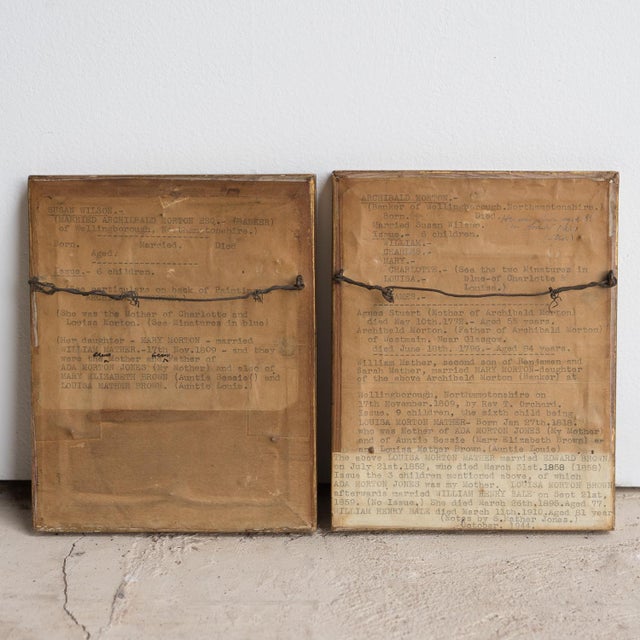 SUSAN WILSON.-
(MARRIED ARCHIBALD MORTON ESQ.- (BANKER)
of Wellingborough, Northamstonshire.)
Born. Married. Died
Aged.
Issue.- 6 children.
particulars on back of
(She was the Mother of Charlotte and
Louisa Morton. (See Minatures in blue)
(Her daughter - MARY MORTON - married
WILLIAM MATHER.-17th Nov.1809 - and they
were Mother of
ADA MORTON JONES (My Mother) and also of
MARY ELIZABETH BROWN (Auntie Bessie() and
LOUISA MATHER BROWN. (Auntie Louie.)
ARCHIBALD MORTON.-
(Banker of Wellingborough. Northamstonshire.)
Born. Died
Married Susan Wilson.
Issue. 6 children.
WILLIAM.-
CHARLES.-
MARY.-
CHARLOTTE.- (See the two Minatures in
LOUISA.- blue-of Charlotte
Louise.)
Agnes Stuart (Mother of Archibald Morton)
died May 10th.1778.- Aged 65 years.
Archibald Morton. (Father of Archibald Morton)
of Westmain. Near Glasgow.
died June 18th. Aged 94 years.
William Mather, second son of Benjaman and
Sarah Mather, married MARY MORTON-daughter
of the above Archibald Morton (Banker) at
Wellingborough, Northamstonshire on
17th.November.1809, by Rev T. Orchard.
Issue. 9 children, the sixth child being
LOUISA MORTON MATHER- Born Jan 27th.1818.
who was Mother of ADA MORTON JONES (My Mother)
and of Auntie Bessie (Mary Elizabeth Brown) and
of Louisa Morton Brown. (Auntie Louie)
The above LOUISA MORTON MATHER married EDWARD
on July 21st.1852, who died March 31st.1858 (1858)
Issue the 3 children mentioned above, of which
ADA MORTON JONES was my Mother. LOUISA MORTON BROWN
afterwards married WILLIAM HENRY BALE on Sept 21st.
(No Issue.) She died March 26th.1895.Aged
WILLIAM HENRY BALE died March 11th.1910.Aged 81 years
(Notes by S.Mather Jones.)